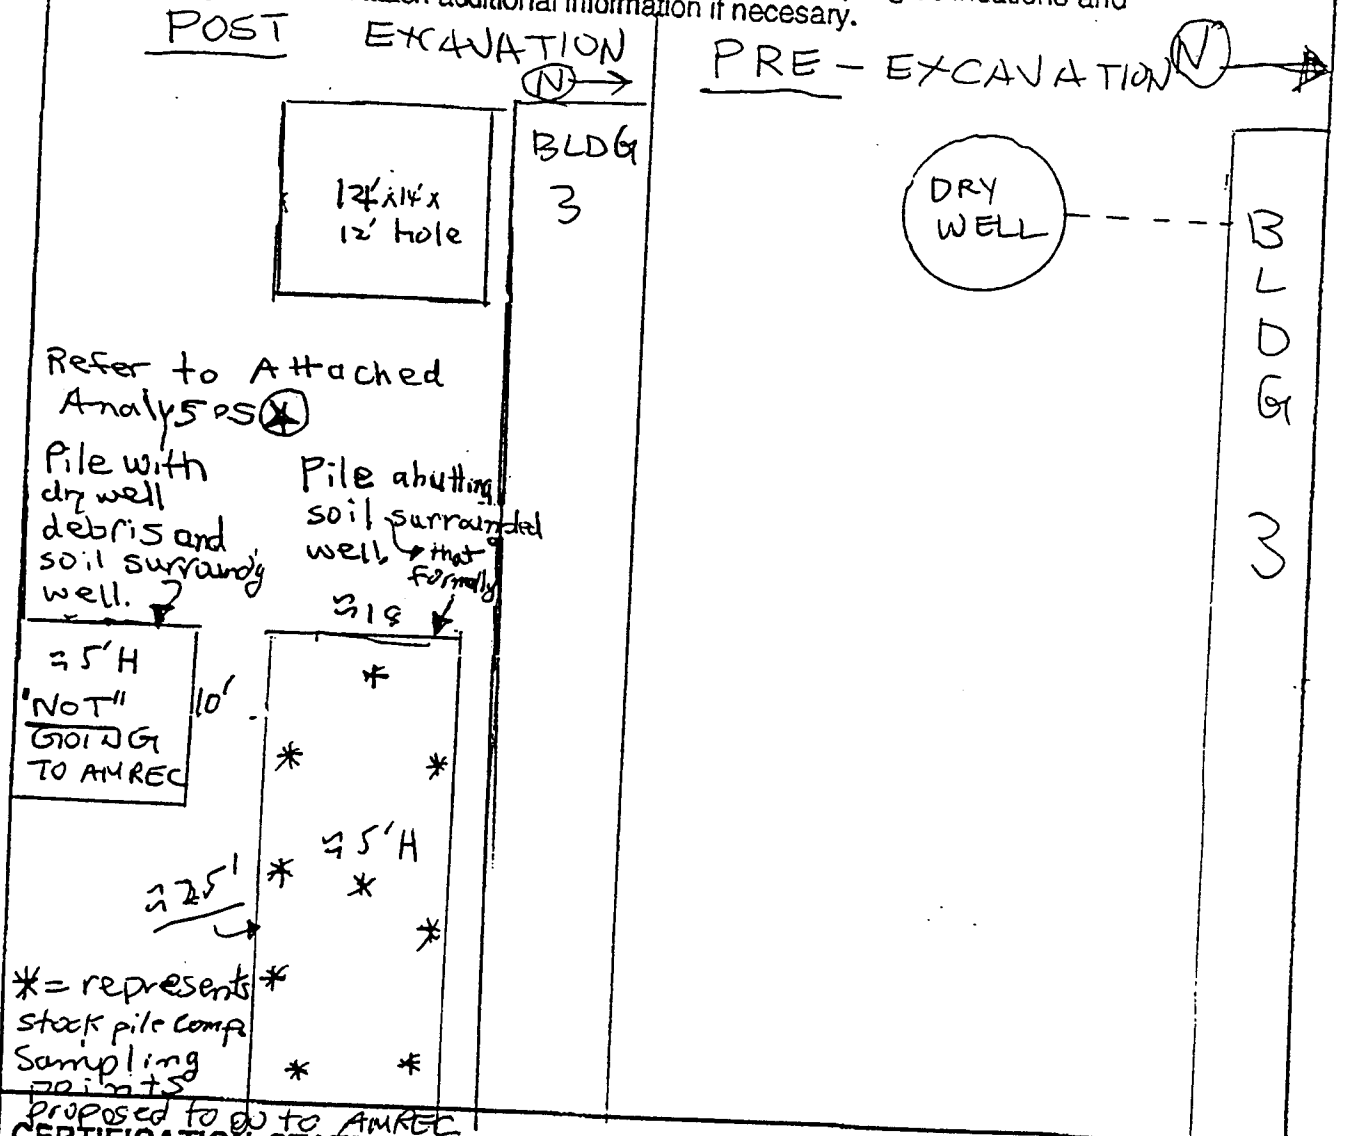 additional information if necesary.
POST EXCAVATION
N
BLDG
3
14'x
12' hole
Refer to Attached
Pile with
dry well
debris and
soil
well.
Pile abutting
soil surrounded
well
that
formally
≈18
≈5'H
"NOT"
GOING
TO AMREC
10'
≈5'H
≈25'
*= represents
stock pile comp.
Sampling
points
proposed to go to AMREC
PRE-EXCAVATION N
DRY
WELL
B
L
D
G
3